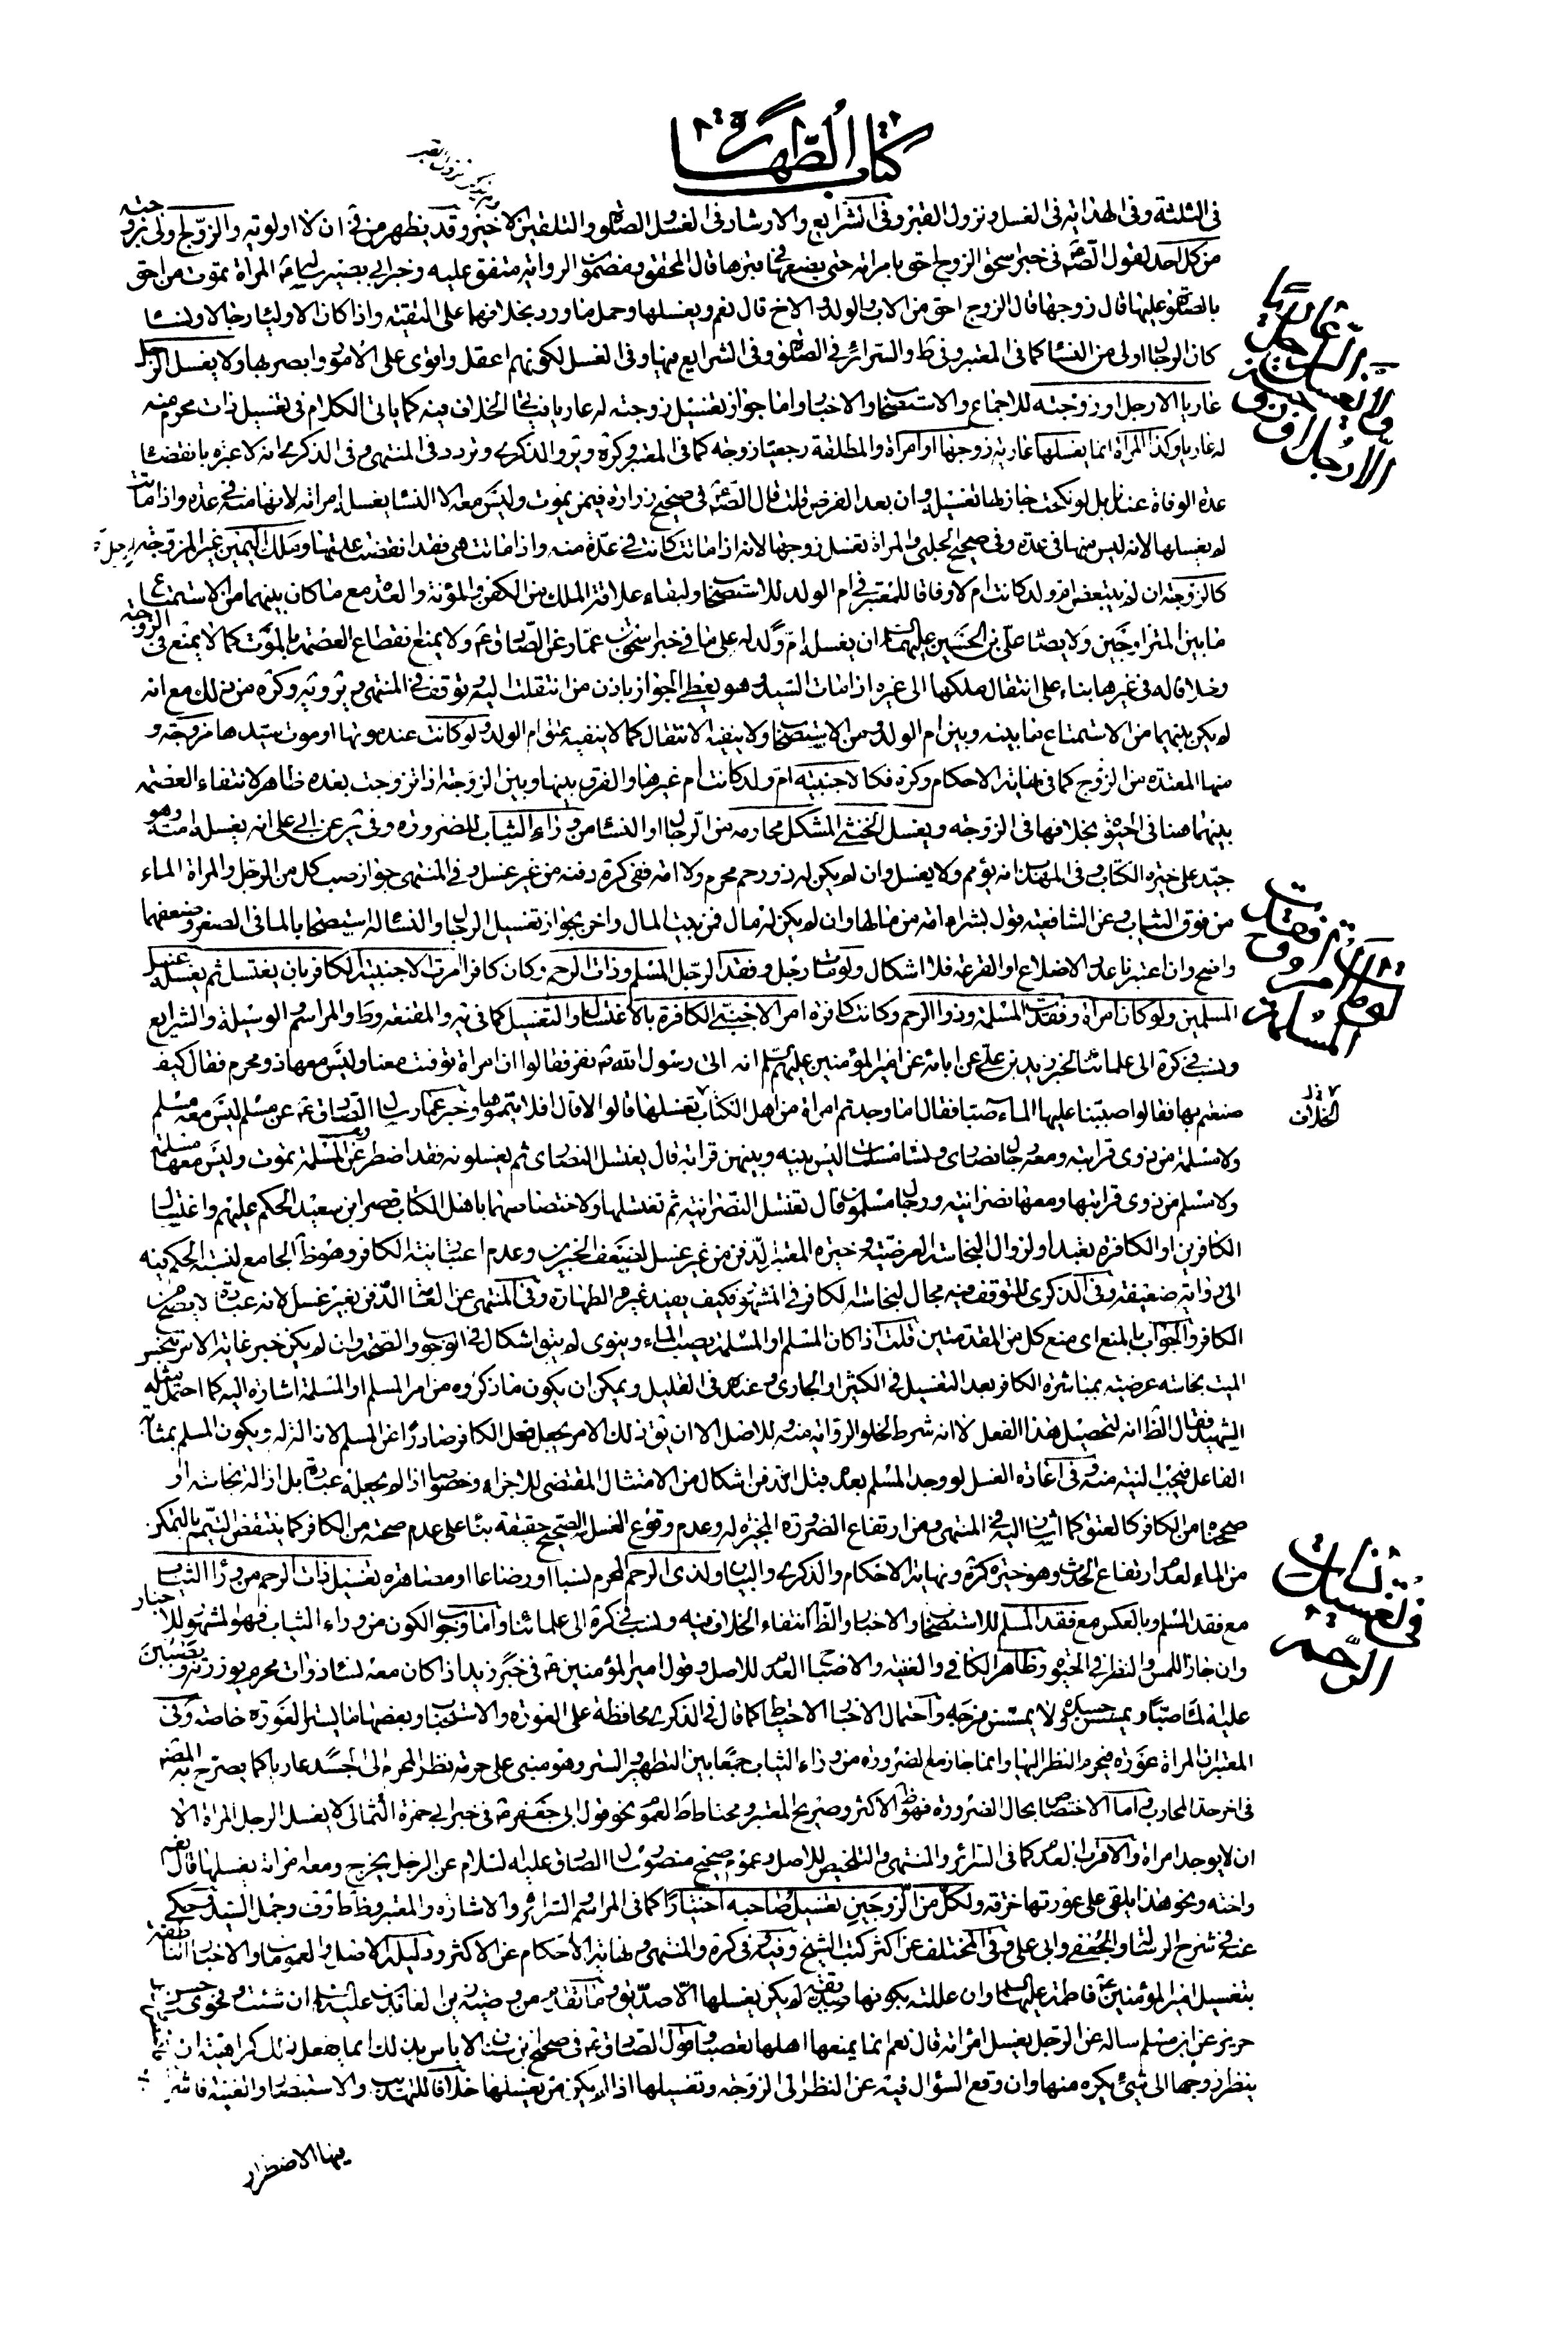 كتاب الطهارة
في الثلثة وفي الهداية في الغسل ونزول القبر وفي الشرايع والارشاد في الغسل والصلوة والتلقين الاخير وقد يظهر من في ان لا اولوية والزوج اولى بزوجته
من كل احد لقول الصادق ع في خبر اسحق الزوج احق بامراته حتى يضعها في قبرها قال المحقق ومضمون الرواية متفق عليه وخبر ابي بصير ساله ع المراة تموت من احق
بالصلوة عليها قال زوجها قال الزوج احق من الاب والولد والاخ قال نعم ويغسلها وحمل ما ورد بخلافهما على التقية واذا كان الاولياء رجالا ونساء
كان الرجال اولى من النساء كما في المعتبر وفي ط والسرائر في الصلوة وفي الشرايع فيها وفي الغسل لكونهم اعقل واقوى على الامور وابصر بها ولا يغسل الرجل
عاريا الا رجل او زوجته للاجماع والاستصحاب والاخبار واما جواز تغسيل زوجته له عاريا فيأتي الخلاف فيه كما ياتي الكلام في تغسيل ذات محرم منه
له عاريا وكذا المراة انما يغسلها عارية زوجها او امراة والمطلقة رجعيا زوجه كما في المعتبر وكرة ير والذكرى وتردد في المنتهى وفي الذكرى انه لا عبرة بانقضاء
عدة الوفاة عندنا بل لو نكحت جاز لها تغسيله وان بعد الفرض قلت قال الصادق ع في صحيح زرارة فيمن يموت وليس معه الا النساء يغسله امراته لانها منه في عدة واذا ماتت
لم يغسلها لانه ليس منها في عدة وفي صحيح الحلبي والمراة تغسل زوجها لانه اذا مات كانت في عدة منه واذا ماتت هي فقد انقضت عدتها وملك اليمين غير المزوجة
كالزوجة ان لم يتبعض ام ولد كانت ام لا وفاقا للمعتبر في ام الولد للاستصحاب ولبقاء علاقة الملك من الكفن والمؤنة والعدة مع ما كان بينهما من الاستمتاع
ما بين المتزاوجين ولايصاء علي بن الحسين عليهما السلام ان يغسله ام ولد له على ما في خبر اسحق بن عمار عن الصادق ع ولا يمنع انقطاع العصمة بالموت كما لا يمنع في الزوجة
وخلافا له في غيرها بناء على انتقال ملكها الى غيره اذ امات السيد وهو يعطي الجواز باذن من انتقلت اليه وتوقف في المنتهى
لم يكن بينهما من الاستمتاع ما بينه وبين ام الولد ومن الاستصحاب ولا ينفيه الانتقال كما لا ينفيه عتق ام الولد ولو كانت عند موتها او موت سيدها مزوجة و
منها المعتدة من الزوج كما في نهاية الاحكام وكرة فكالاجنبية ام ولد كانت ام غيرها والفرق بينها وبين الزوجة اذا تزوجت بعده ظاهر لانتفاء العصمة
بينهما هنا في الحيوة بخلافها في الزوجة ويغسل الخنثى المشكل محارمه من الرجال او النساء من وراء الثياب للضرورة وفي ير عن ابي علي انه يغسله امته وهو
جيد على خيرة الكتاب وفي المهذب انه يؤمم ولا يغسل وان لم يكن له ذو رحم محرم ولا امة ففي كرة دفنه من غير غسل وفي المنتهى جواز صب كل من الرجل والمراة الماء
من فوق الثياب وعن الشافعية قول بشراء امة من مالها وان لم يكن له مال فمن بيت المال واخر بجواز تغسيل الرجال والنساء له استصحابا لما في الصغر وضعفهما
واضح وان اعتبرنا عد الاضلاع او القرعة فلا اشكال ولو مات رجل وفقد الرجل المسلم وذات الرحم وكان كافرا امرت الاجنبية الكافر بان يغتسل ثم يغسله غسل
المسلمين ولو كان امراة وفقدت المسلمة وذو الرحم وكانت كافرة امر الاجنبي الكافرة بالاغتسال والتغسيل كما في يه والمقنعة وط والمراسم والوسيلة والشرايع
ونسب في كرة الى علمائنا لخبر زيد بن علي عن ابائه عن امير المؤمنين عليهم السلم انه اتى رسول الله ص نفر فقالوا ان امراة توفيت معنا وليس معها ذو محرم فقال كيف
صنعتم بها فقالوا صببنا عليها الماء صبا فقال اما وجدتم امراة من اهل الكتاب تغسلها قالوا لا قال افلا يممتموها وخبر عمار سال الصادق ع عن مسلم ليس معه مسلم
ولا مسلمة من ذوي قرابته ومعه رجال نصارى ونساء مسلمات ليس بينه وبينهن قرابة قال يغتسل النصارى ثم يغسلونه فقد اضطر وعن المسلمة تموت وليس معها مسلمة
ولا مسلم من ذوي قرابتها ومعها نصرانية ورجال مسلمون قال تغتسل النصرانية ثم تغسلها ولاختصاصهما باهل الكتاب قصر ابن سعيد الحكم عليهم واغتسال
الكافر من او الكافرة تعبد او لزوال النجاسة العرضية وخيرة المعتبر الدفن من غير غسل لضعف الخبرين وعدم اعتبار نية الكافر وهو ظ الجامع لنسبة الحكم فيه
الى رواية ضعيفة وفي الذكرى للتوقف فيه مجال لنجاسة الكافر في المشهور فكيف يفيد غيره الطهارة وفي المنتهى عن العلماء الدفن بغير غسل لانه عبادة لا يصح من
الكافر والجواب بالمنع اي منع كل من المقدمتين قلت اذا كان المسلم او المسلمة يصب الماء وينوي لم يبق اشكال في الوجوب والصحة وان لم يكن خبر غاية الامر تنجس
الميت نجاسة عرضية بمباشرة الكافر بعد التغسيل في الكثير او الجاري وعنده في القليل ويمكن ان يكون ما ذكروه من امر المسلم او المسلمة اشارة اليه كما احتمل مثله
الشهيد فقال الظ انه لتحصيل هذا الفعل لا انه شرط لخلو الرواية منه وللاصل الا ان يق ذلك الامر يجعل فعل الكافر صادرا عن المسلم لانه الة له ويكون المسلم بمثابة
الفاعل فيجب النية منه وفي اعادة الغسل لو وجد المسلم بعده قبل الدفن اشكال من الامتثال المقتضي للاجزاء وخصوصا اذا لم يجعله عبادة بل ازالة نجاسة او
صححناه من الكافر كالعتق كما اشار اليه في المنتهى ومن ارتفاع الضرورة المجيزة له وعدم وقوع الغسل الصحيح حقيقة بناء على عدم صحته من الكافر كما ينتقض التيمم بالتمكن
من الماء لعدم ارتفاع الحدث وهو خيرة كرة ونهاية الاحكام والذكرى والبيان ولذي الرحم المحرم نسبا او رضاعا او مصاهرة تغسيل ذات الرحم من وراء الثياب
مع فقد المسلم وبالعكس مع فقد المسلم للاستصحاب والاخبار والظ انتفاء الخلاف فيه ونسب في كرة الى علمائنا واما وجوب الكون من وراء الثياب فهو المشهور للاخبار
وان جاز اللمس والنظر في الحيوة وظاهر الكافي والغنية والاصباح العدم للاصل وقول امير المؤمنين ع في خبر زيد اذا كان معه نساء ذوات محرم يوزرنه ويصببن
عليه الماء صبا ويمسسن جسده ولا يمسسن فرجه واحتمال الاخبار الاحتياط كما قال في الذكرى محافظة على العورة والاستحباب وبعضها ما يستر العورة خاصة وفي
المعتبر ان المراة عورة فيحرم النظر اليها وانما جاز مع الضرورة من وراء الثياب جمعا بين التطهير والستر وهو مبني على حرمة نظر المحرم الى الجسد عاريا كما يصرح به المص
في اخر حد المحارب واما الاختصاص بحال الضرورة فهو ظ الاكثر وصريح المعتبر ومحتاط ط لعموم نحو قول ابي جعفر ع في خبر ابي حمزة الثمالي لا يغسل الرجل المراة الا
ان لا يوجد امراة والاقرب العدم كما في السرائر والمنتهى والتلخيص للاصل وعموم صحيح منصور سال الصادق عليه السلام عن الرجل يخرج ومعه امراته يغسلها قال نعم
واخته ونحو هذا يلقى على عورتها خرقة ولكل من الزوجين تغسيل صاحبه اختيارا كما في المراسم والسرائر والاشارة والمعتبر وظ ط وف وجمل السيد وحكى
عنه في شرح الرسالة والجعفي وابي علي وفي المختلف عن اكثر كتب الشيخ وفيه وفي كرة والمنتهى ونهاية الاحكام عن الاكثر ودليله الاصل والعموم والاخبار الناطقة
بتغسيل امير المؤمنين ع فاطمة عليها السلام وان عللته بكونها صديقة لم يكن يغسلها الا صديق وما تقدم من وصية زين العابدين عليه السلام ان شئت ونحو حسن
حريز عن ابن مسلم ساله عن الرجل يغسل امراته قال نعم انما يمنعها اهلها تعصبا وقول الصادق ع في صحيح ابن سنان لا باس بذلك انما يفعل ذلك كراهية ان
ينظر زوجها الى شيء يكره منها وان وقع السؤال فيه عن النظر الى الزوجة وتغسيلها اذا لم يكن من يغسلها خلافا للتهذيب والاستبصار والغنية فاشترط
فيها الاضطرار
ولا يغسل الرجل عاريا الا رجل او زوجته
لو مات رجل وفقد المسلم
في تغسيل ذات الرحم